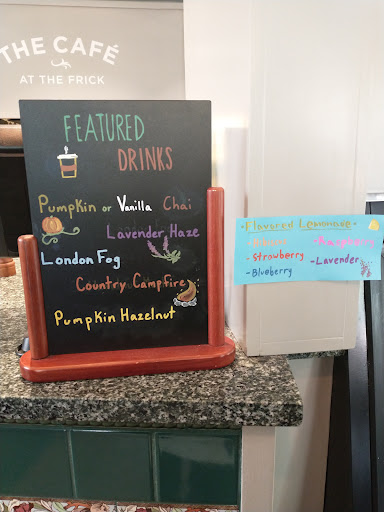 THE CAFÉ
AT THE FRICK
FEATURED
DRINKS
Pumpkin or Vanilla Chai
Lavender Haze
London Fog
Country Campfire
Pumpkin Hazelnut
Flavored Lemonade
- Raspberry
- Strawberry
- Lavender
- Blueberry